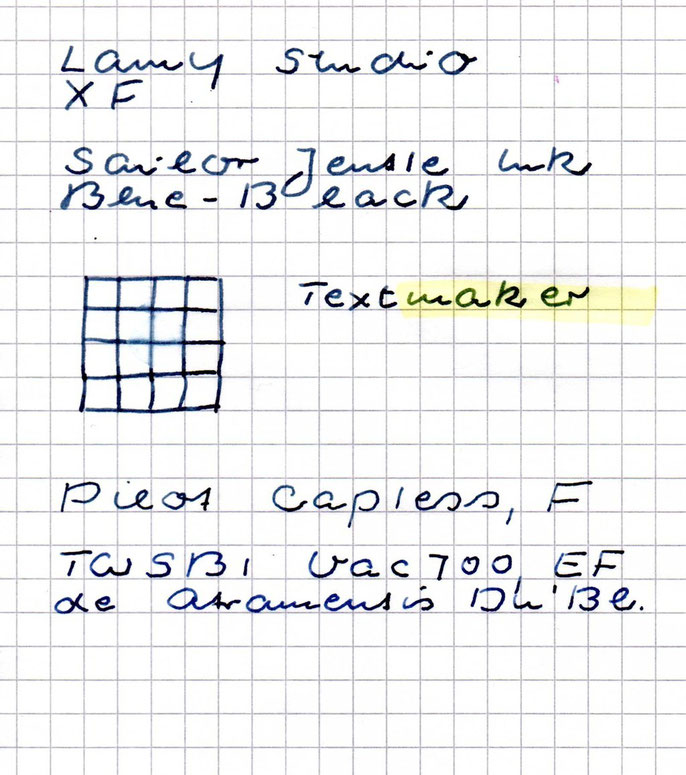 Lamy Studio
XF
Sailor Jentle Ink
Blue-Black
Textmaker
Pilot Capless, F
TWSBI Vac 700, EF
de Atramentis Dk'Bl.